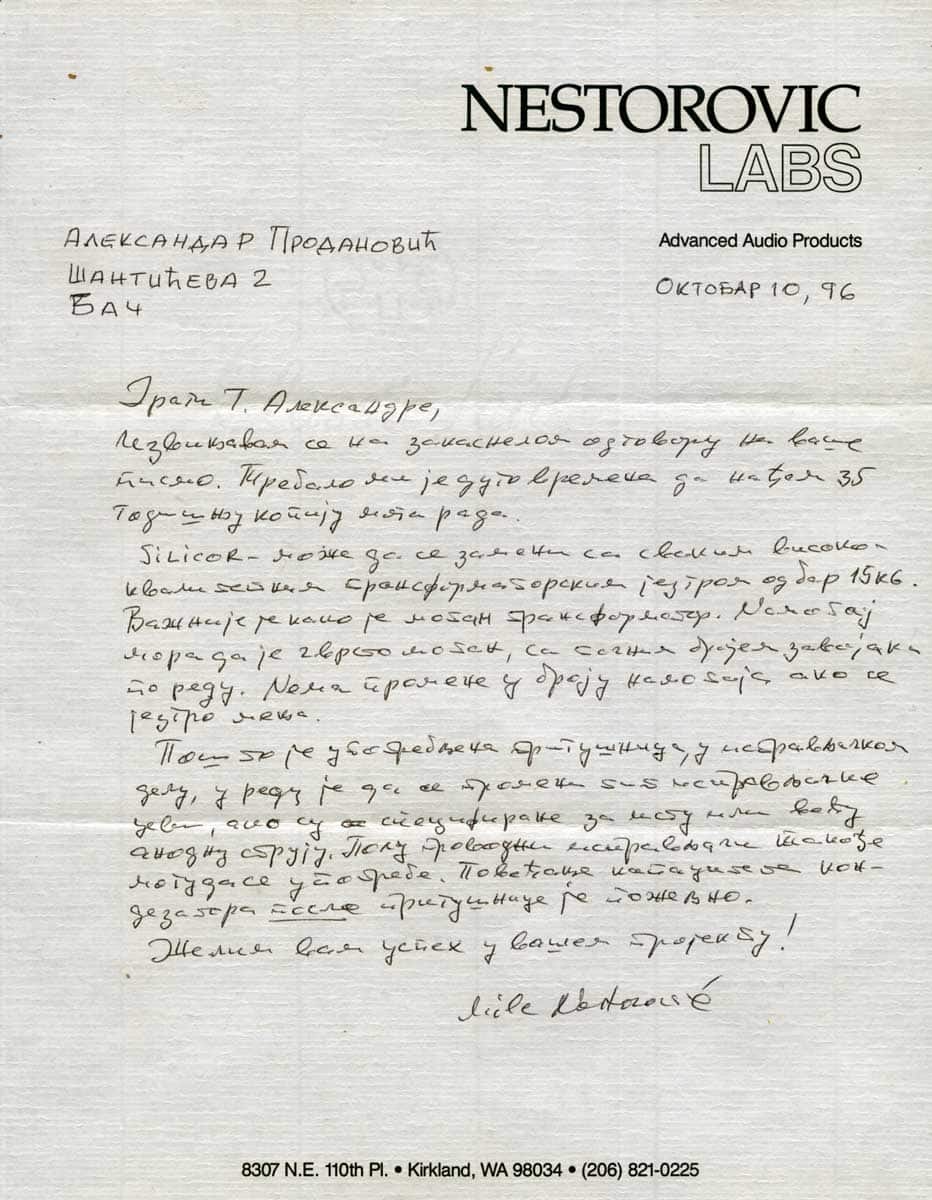 NESTOROVIC
LABS
Advanced Audio Products
Александар Продановић
Шантићева 2
Бач
Октобар 10, 96
Драги Г. Александре,
Извињавам се на закаснелом одговору на ваше
писмо. Требало ми је дуго времена да нађем 35
годишњу копију мога рада.
SILICOR - може да се замени са сваким високо-
квалитетним трансформаторским језгром од бар 15кG.
Важније је како је мотан трансформатор. Намотај
мора да је чврсто мотан, са тачним бројем завојака
по реду. Нема промене у броју намотаја ако се
језгро мења.
Пошто је употребљена пригушница, у исправљачком
делу, у реду је да се промени тип исправљачке
цеви, ако су специфиране за исту или већу
анодну струју. Полу проводни исправљачи такође
могу да се употребе. Повећање капацитета кон-
дезатора после пригушнице је пожељно.
Желим вам успех у вашем пројекту!
Mile Nestorović
8307 N.E. 110th Pl. • Kirkland, WA 98034 • (206) 821-0225